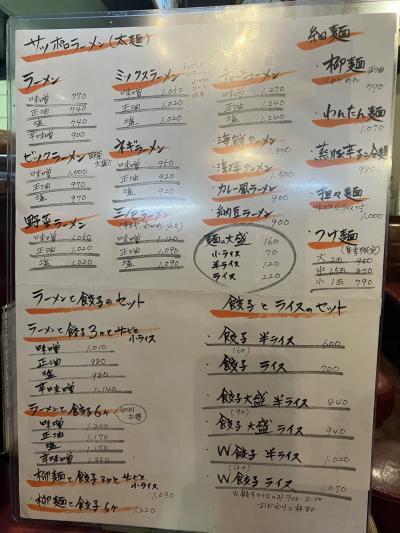 サッポロラーメン(太麺)
ラーメン
味噌 770
正油 740
塩 740
辛味噌 900
ビックラーメン 野菜大盛り
味噌 1.000
正油 970
塩 970
野菜ラーメン
味噌 1.050
正油 1.020
塩 1.020
ミックスラーメン
味噌 1.050
正油 1.020
塩 1.020
ネギラーメン
味噌 950
正油 920
塩 920
三色ラーメン
味噌 1.120
正油 1.090
塩 1.090
チャーシューメン
味噌 1.270
正油 1.240
塩 1.240
海鮮タンメン 1.300
海洋タンメン 1.500
カレー風ラーメン 900
納豆ラーメン 900
麺の大盛 160
小ライス 70
半ライス 120
ライス 220
細麺
・柳麺 正油 790
・わんたん麺 1.070
・蒸豚辛子冷麺 980
・担々麺
1.000
・つけ麺
大 2玉 950
中 1.5玉 870
小 1玉 790
ラーメンと餃子のセット
ラーメンと餃子3ケとサービス小ライス
味噌 1.010
正油 980
塩 980
辛味噌 1.140
ラーメンと餃子6ケ
味噌 1.200
正油 1.170
塩 1.170
辛味噌 1.330
・柳麺と餃子3ケとサービス小ライス 1.030
・柳麺と餃子6ケ 1.220
餃子とライスのセット
・餃子 半ライス 600
(6ケ)
・餃子 ライス 700
・餃子大盛 半ライス 840
(9ケ)
・餃子大盛 ライス 940
・W餃子 半ライス 1.020
(12ケ)
・W餃子 ライス 1.070
W餃子ライスのみライス・スープ
おかわり